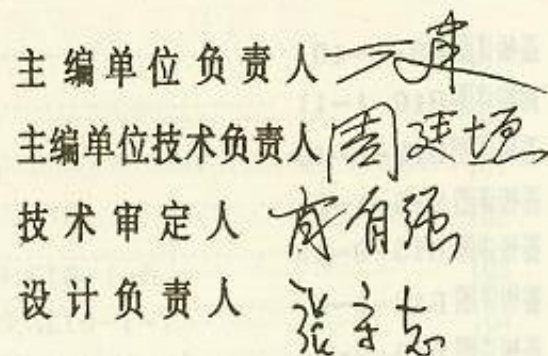 主编单位负责人
主编单位技术负责人 周廷垣
技术审定人
设计负责人 张守志